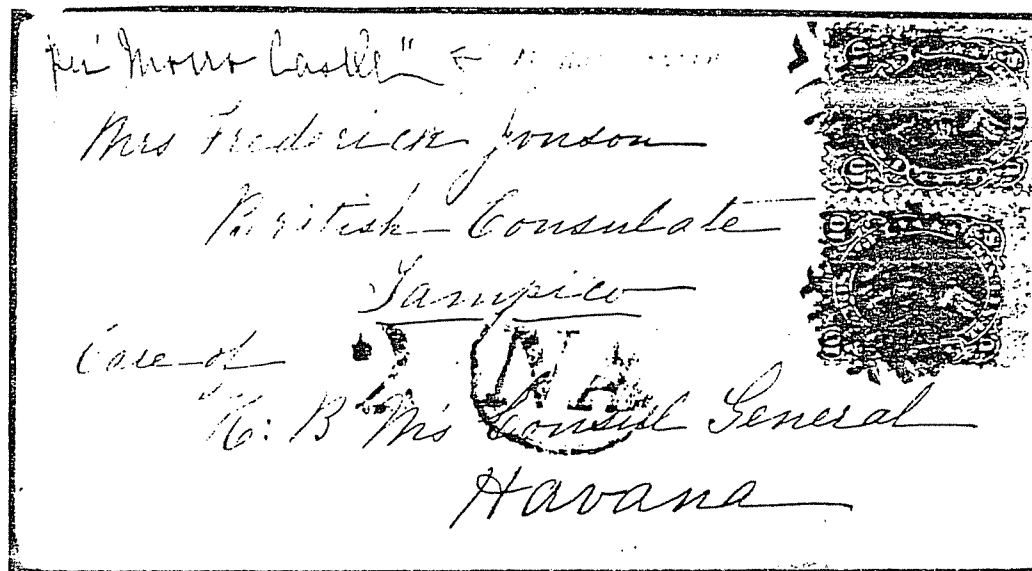 per "Morro Castle"
Mrs Frederick Jonson
British Consulate
Tampico
Care of
H: B M's Consul General
Havana
NA
10
10
10
10
10
10